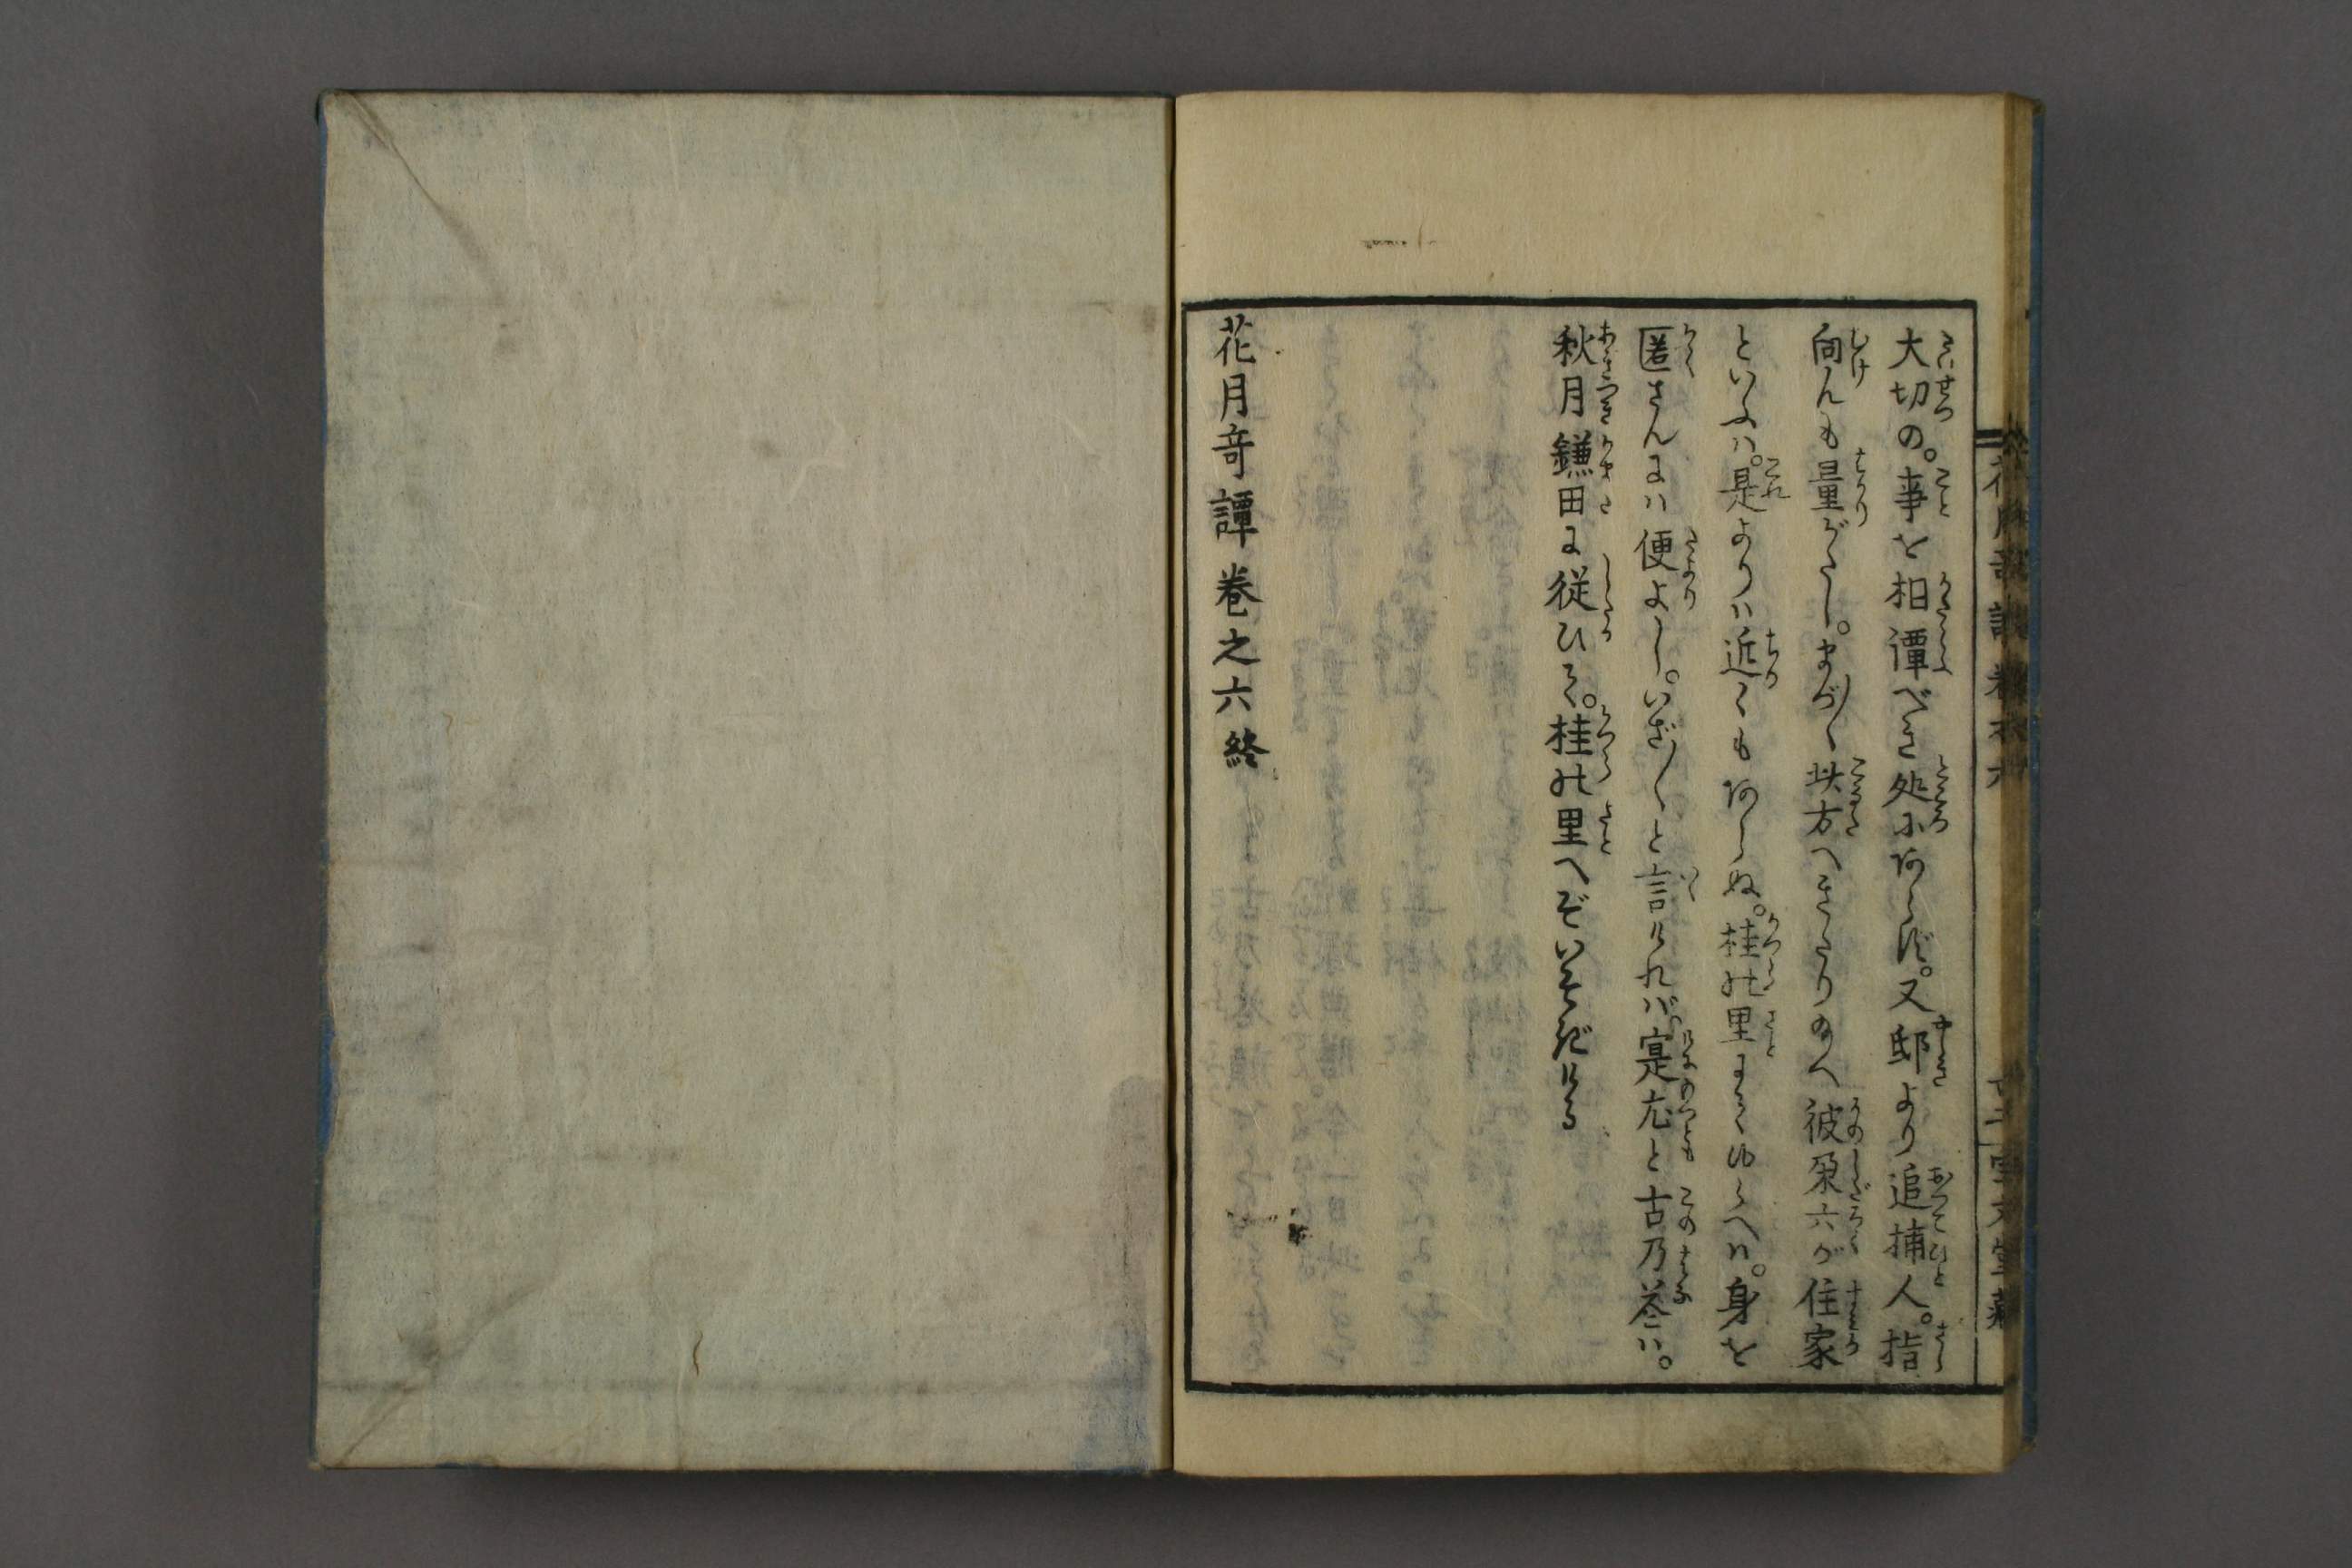 大切の。事を相譚べき処にあらず。又邸より追捕人。指
向んも量がたし。まづ〳〵此方へきたりめへ彼梟六が住家
といふハ。是よりハ近くもあらぬ。桂の里にまゐらへハ。身を
匿さんにハ便よし。いざ〳〵と言ければ。寔尤と古乃花ハ。
秋月鎌田に従ひて。桂の里へぞいそぎける
花月奇譚巻之六終